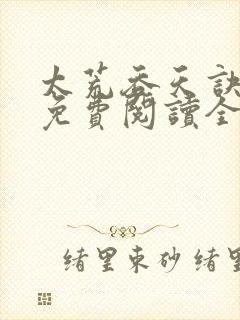 太荒吞天訣
免費閱讀全
緒里束砂 緒里